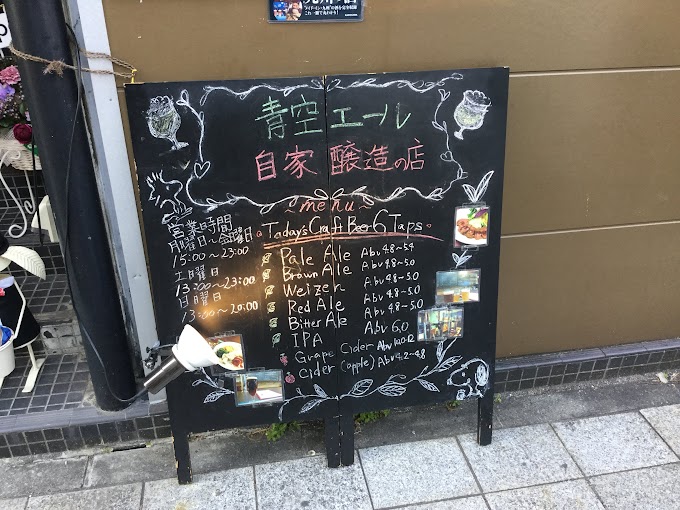 青空エール
自家醸造の店
menu
Today's Craft Beer 6 Taps
営業時間
月曜日～金曜日
15:00～23:00
土曜日
13:00～23:00
日曜日
13:00～20:00
Pale Ale Abv 4.8~5.4
Brown Ale Abv 4.8~5.0
Weizen Abv 4.8~5.0
Red Ale Abv 4.8~5.0
Bitter Ale Abv 4.8~5.0
IPA Abv 6.0
Grape Cider Abv
Cider (apple) Abv 4.2~4.8